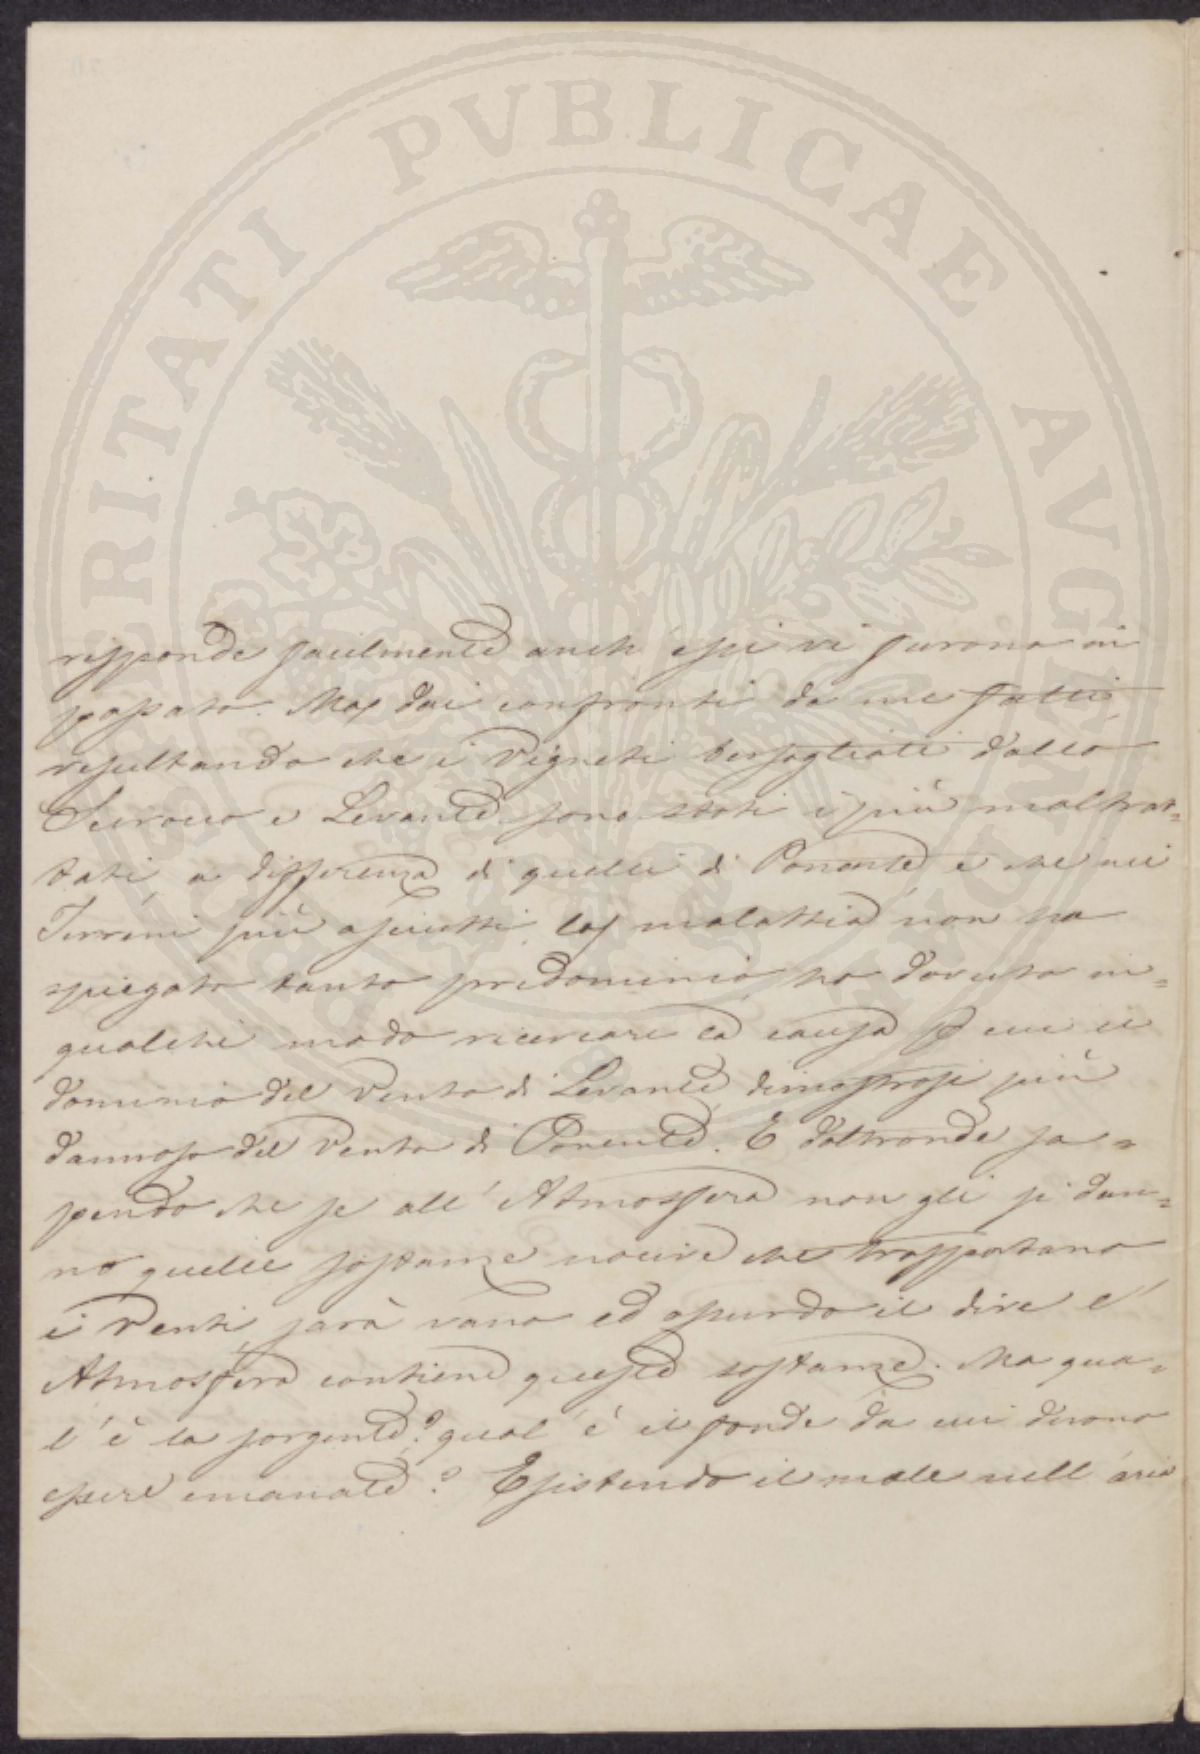 PROSPERITATI PVBLICAE AVGENDAE
risponde facilmente anch'essi vi furono in
passato. Ma dai confronti da me fatti
resultando che i Vigneti bersagliati dallo
Scirocco e Levante sono stati i più maltrat=
tati, a differenza di quelli di Ponente e che nei
Terreni più asciutti la malattia non ha
spiegato tanto predominio, ho dovuto in=
qualche modo ricercare la causa p cui il
dominio del Vento di Levante dimostrasi più
dannoso del Vento di Ponente. E d'altronde sa=
pendo che se all'Atmosfera non gli si dan=
no quelle sostanze nocive che trasportano
i Venti, sarà vano ed assurdo il dire l'
Atmosfera contiene queste sostanze. Ma qua=
l'è la sorgente? qual'è il fonde da cui devono
essere emanate? Esistendo il male nell'aria